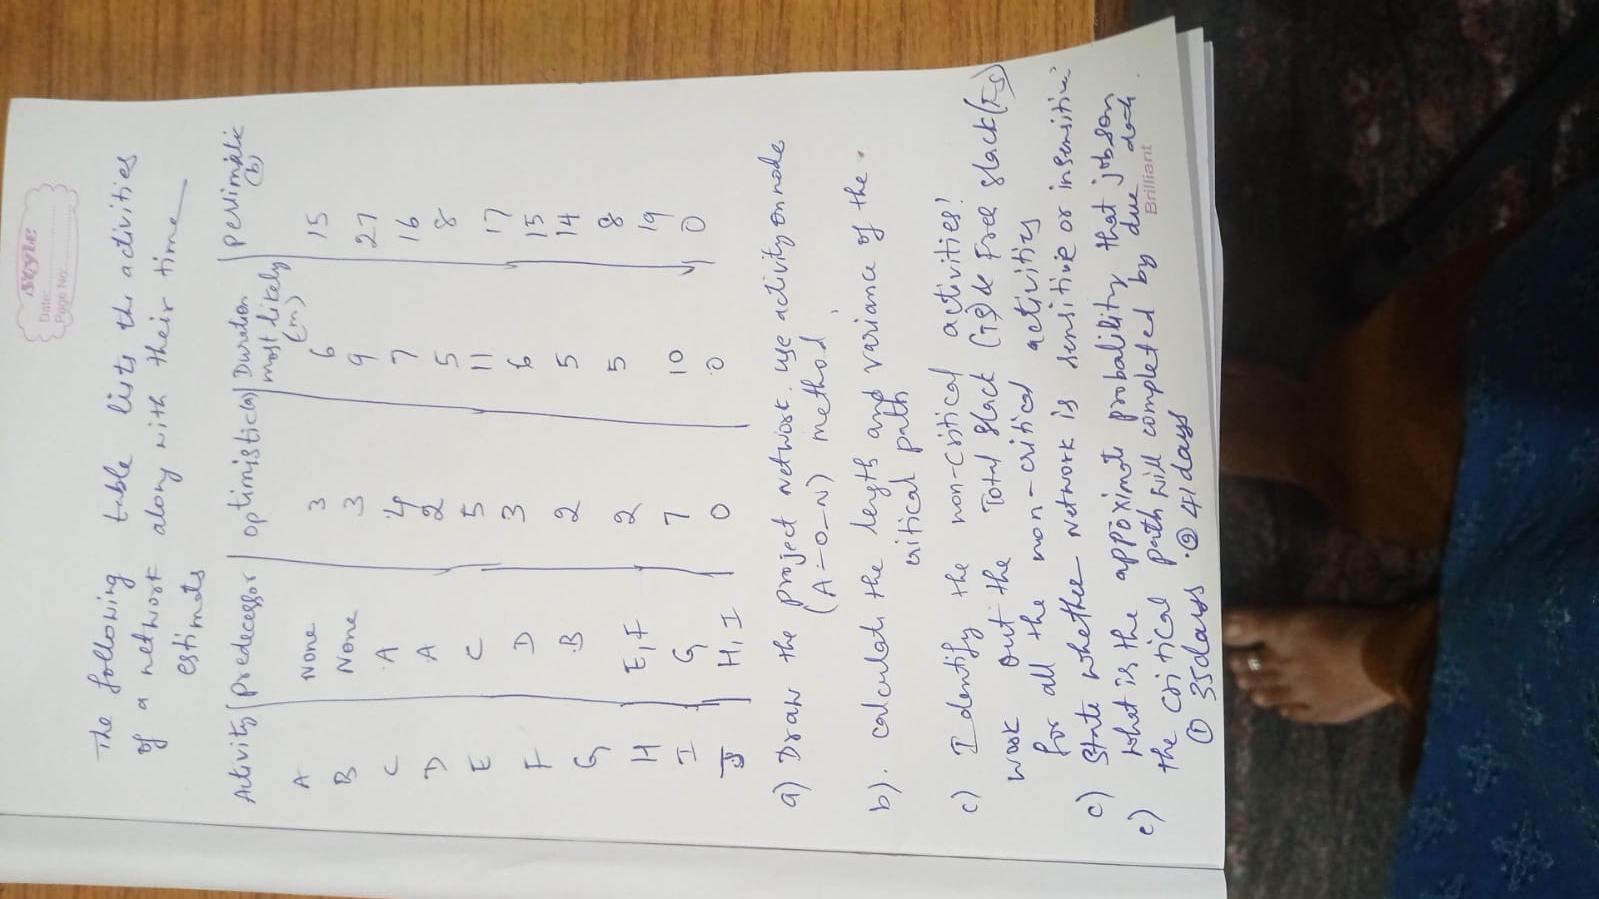 Style
Date:
Page No:
The following table lists the activities
of a network along with their time
estimats
Activity predecessor optimistic(a) Duration most likely (m) pessimistic (b)
A None 3 6 15
B None 3 9 27
C A 4 7 16
D A 2 5 8
E C 5 11 17
F D 3 6 15
G B 2 5 14
H E,F 2 5 8
I G 7 10 19
J H, I 0 0 0
a) Draw the project network. use activity on node
(A-O-N) method
b). calculate the length and variance of the
critical path
c) Identify the non-critical activities!
work out the Total slack (TS) & Free slack (FS)
for all the non-critical activities
c) State whether network is sensitive or insensitive
e) what is the approximate probability that jobs on
the critical path will completed by due date
① 35days. ② 41days
Brilliant